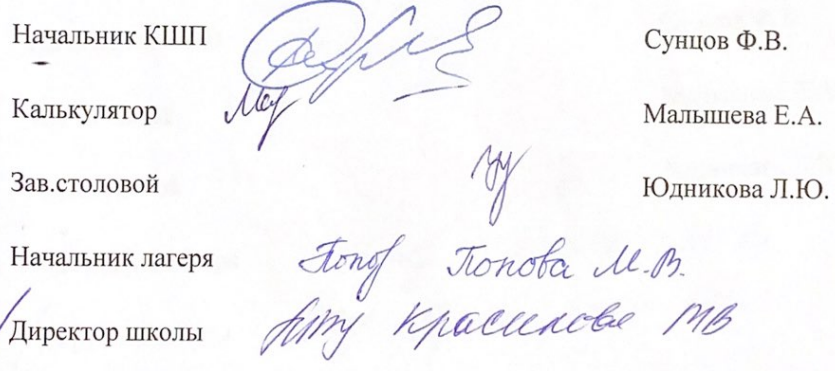 Начальник КШП Сунцов Ф.В.
Калькулятор Малышева Е.А.
Зав.столовой Юдникова Л.Ю.
Начальник лагеря Попова М.В.
Директор школы МВ